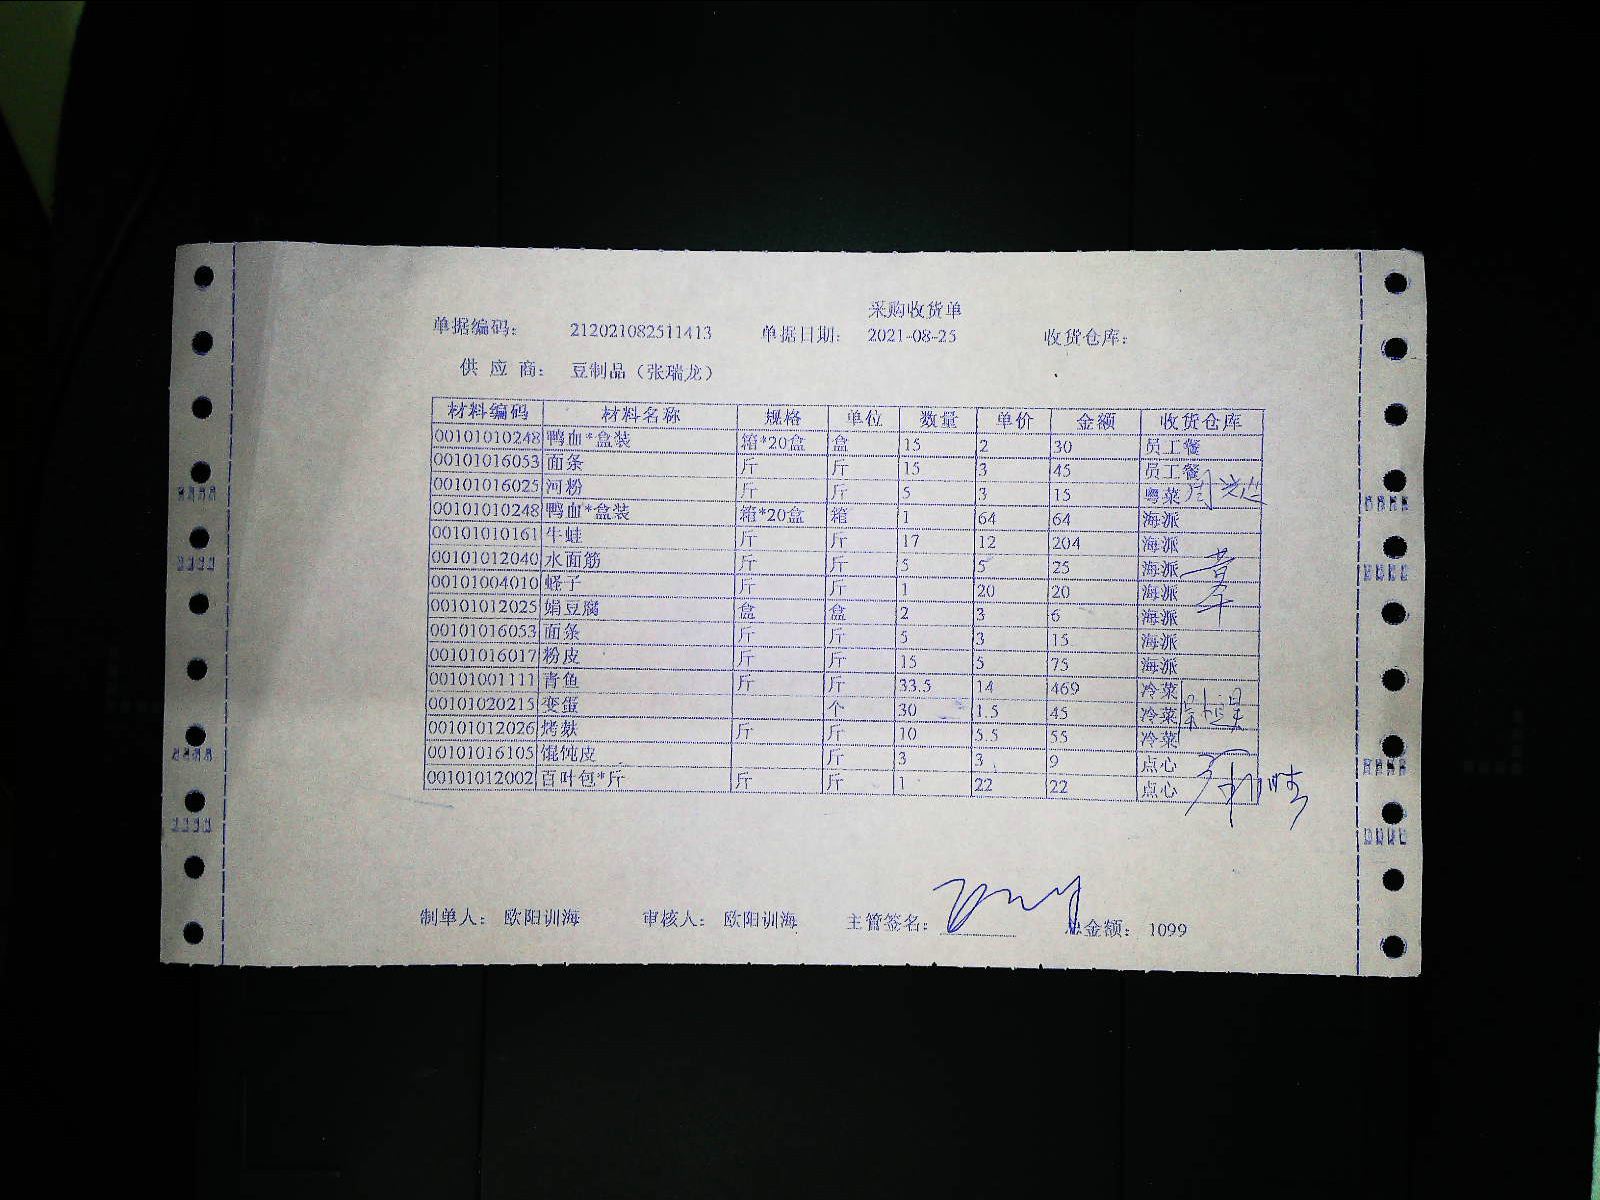 采购收货单
单据编码: 212021082511413 单据日期: 2021-08-25 收货仓库:
供 应 商: 豆制品（张瑞龙）
材料编码 材料名称 规格 单位 数量 单价 金额 收货仓库
00101010248 鸭血*盒装 箱*20盒 盒 15 2 30 员工餐
00101016053 面条 斤 斤 15 3 45 员工餐
00101016025 河粉 斤 斤 5 3 15 粤菜
00101010248 鸭血*盒装 箱*20盒 箱 1 64 64 海派
00101010161 牛蛙 斤 斤 17 12 204 海派
00101012040 水面筋 斤 斤 5 5 25 海派
00101004010 蛏子 斤 斤 1 20 20 海派
00101012025 绢豆腐 盒 盒 2 3 6 海派
00101016053 面条 斤 斤 5 3 15 海派
00101016017 粉皮 斤 斤 15 5 75 海派
00101001111 青鱼 斤 斤 33.5 14 469 冷菜
00101020215 变蛋 个 30 1.5 45 冷菜
00101012026 烤麸 斤 斤 10 5.5 55 冷菜
00101016105 馄饨皮 斤 3 3 9 点心
00101012002 百叶包*斤 斤 斤 1 22 22 点心
制单人: 欧阳训海 审核人: 欧阳训海 主管签名: 总金额: 1099